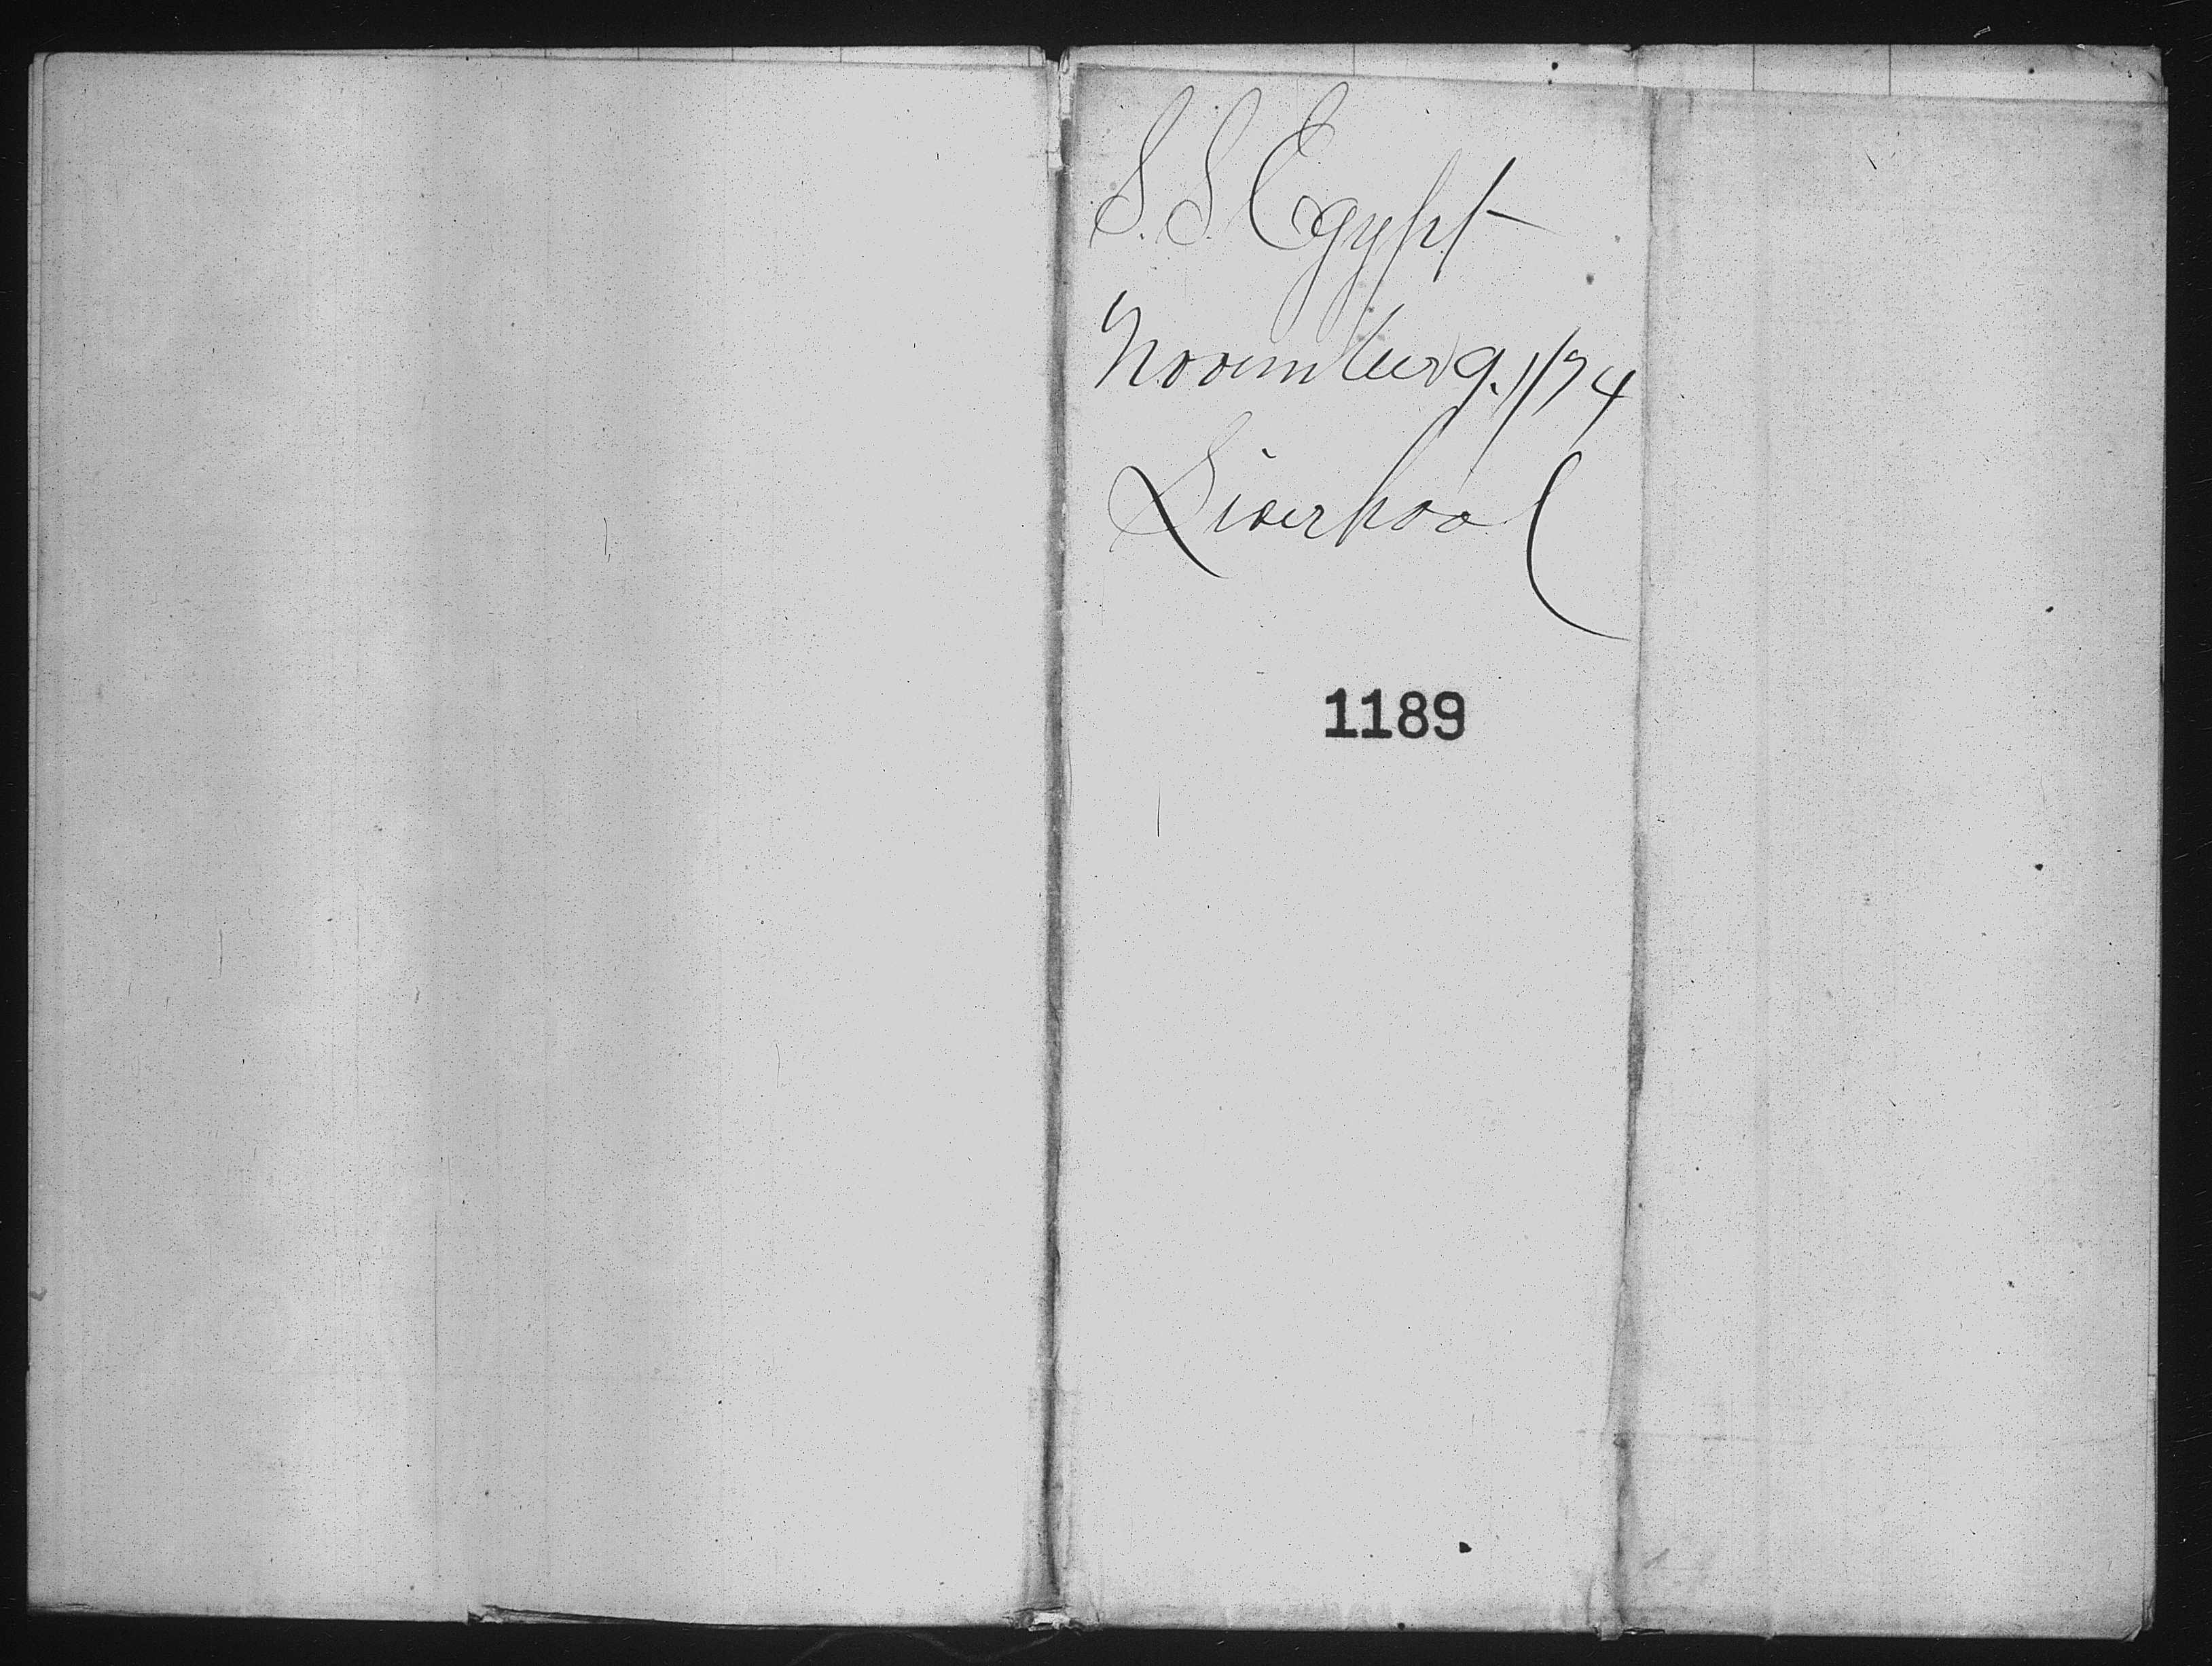 S.S. Egypt
November 9. / 74
Liverpool
1189